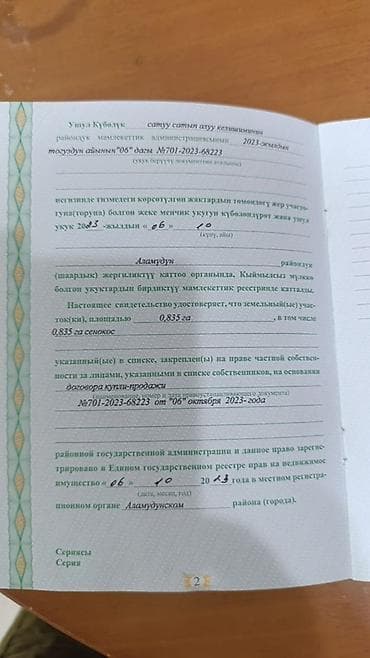 Ушул Күбөлүк сатуу сатып алуу келишиминин
райондук мамлекеттик администрациясынын 2023-жылдын
тогуздун айынын "06" дагы №701-2023-68223
(укук берүүчү документтин аталышы)
негизинде тизмедеги көрсөтүлгөн жактардын төмөндөгү жер участо-
гуна(торуна) болгон жеке менчик укугун күбөлөндүрөт жана ушул
укук 2023 -жылдын « 06 » 10
(күнү, айы)
Аламүдүн райондук
(шаардык) жергиликтүү каттоо органында, Кыймылсыз мүлккө
болгон укуктардын бирдиктүү мамлекеттик реестринде катталды.
Настоящее свидетельство удостоверяет, что земельный(ые) учас-
ток(ки), площадью 0,835 га , в том числе
0,835 га сенокос
указанный(ые) в списке, закреплен(ы) на праве частной собствен-
ности за лицами, указанными в списке собственников, на основании
договора купли-продажи
(наименование, номер и дата правоустанавливающего документа)
№701-2023-68223 от "06" октября 2023-года
районной государственной администрации и данное право зарегис-
трировано в Едином государственном реестре прав на недвижимое
имущество « 06 » 10 2023 года в местном регистра-
(дата, месяц, год)
ционном органе Аламудунском района (города).
Сериясы
Серия
2